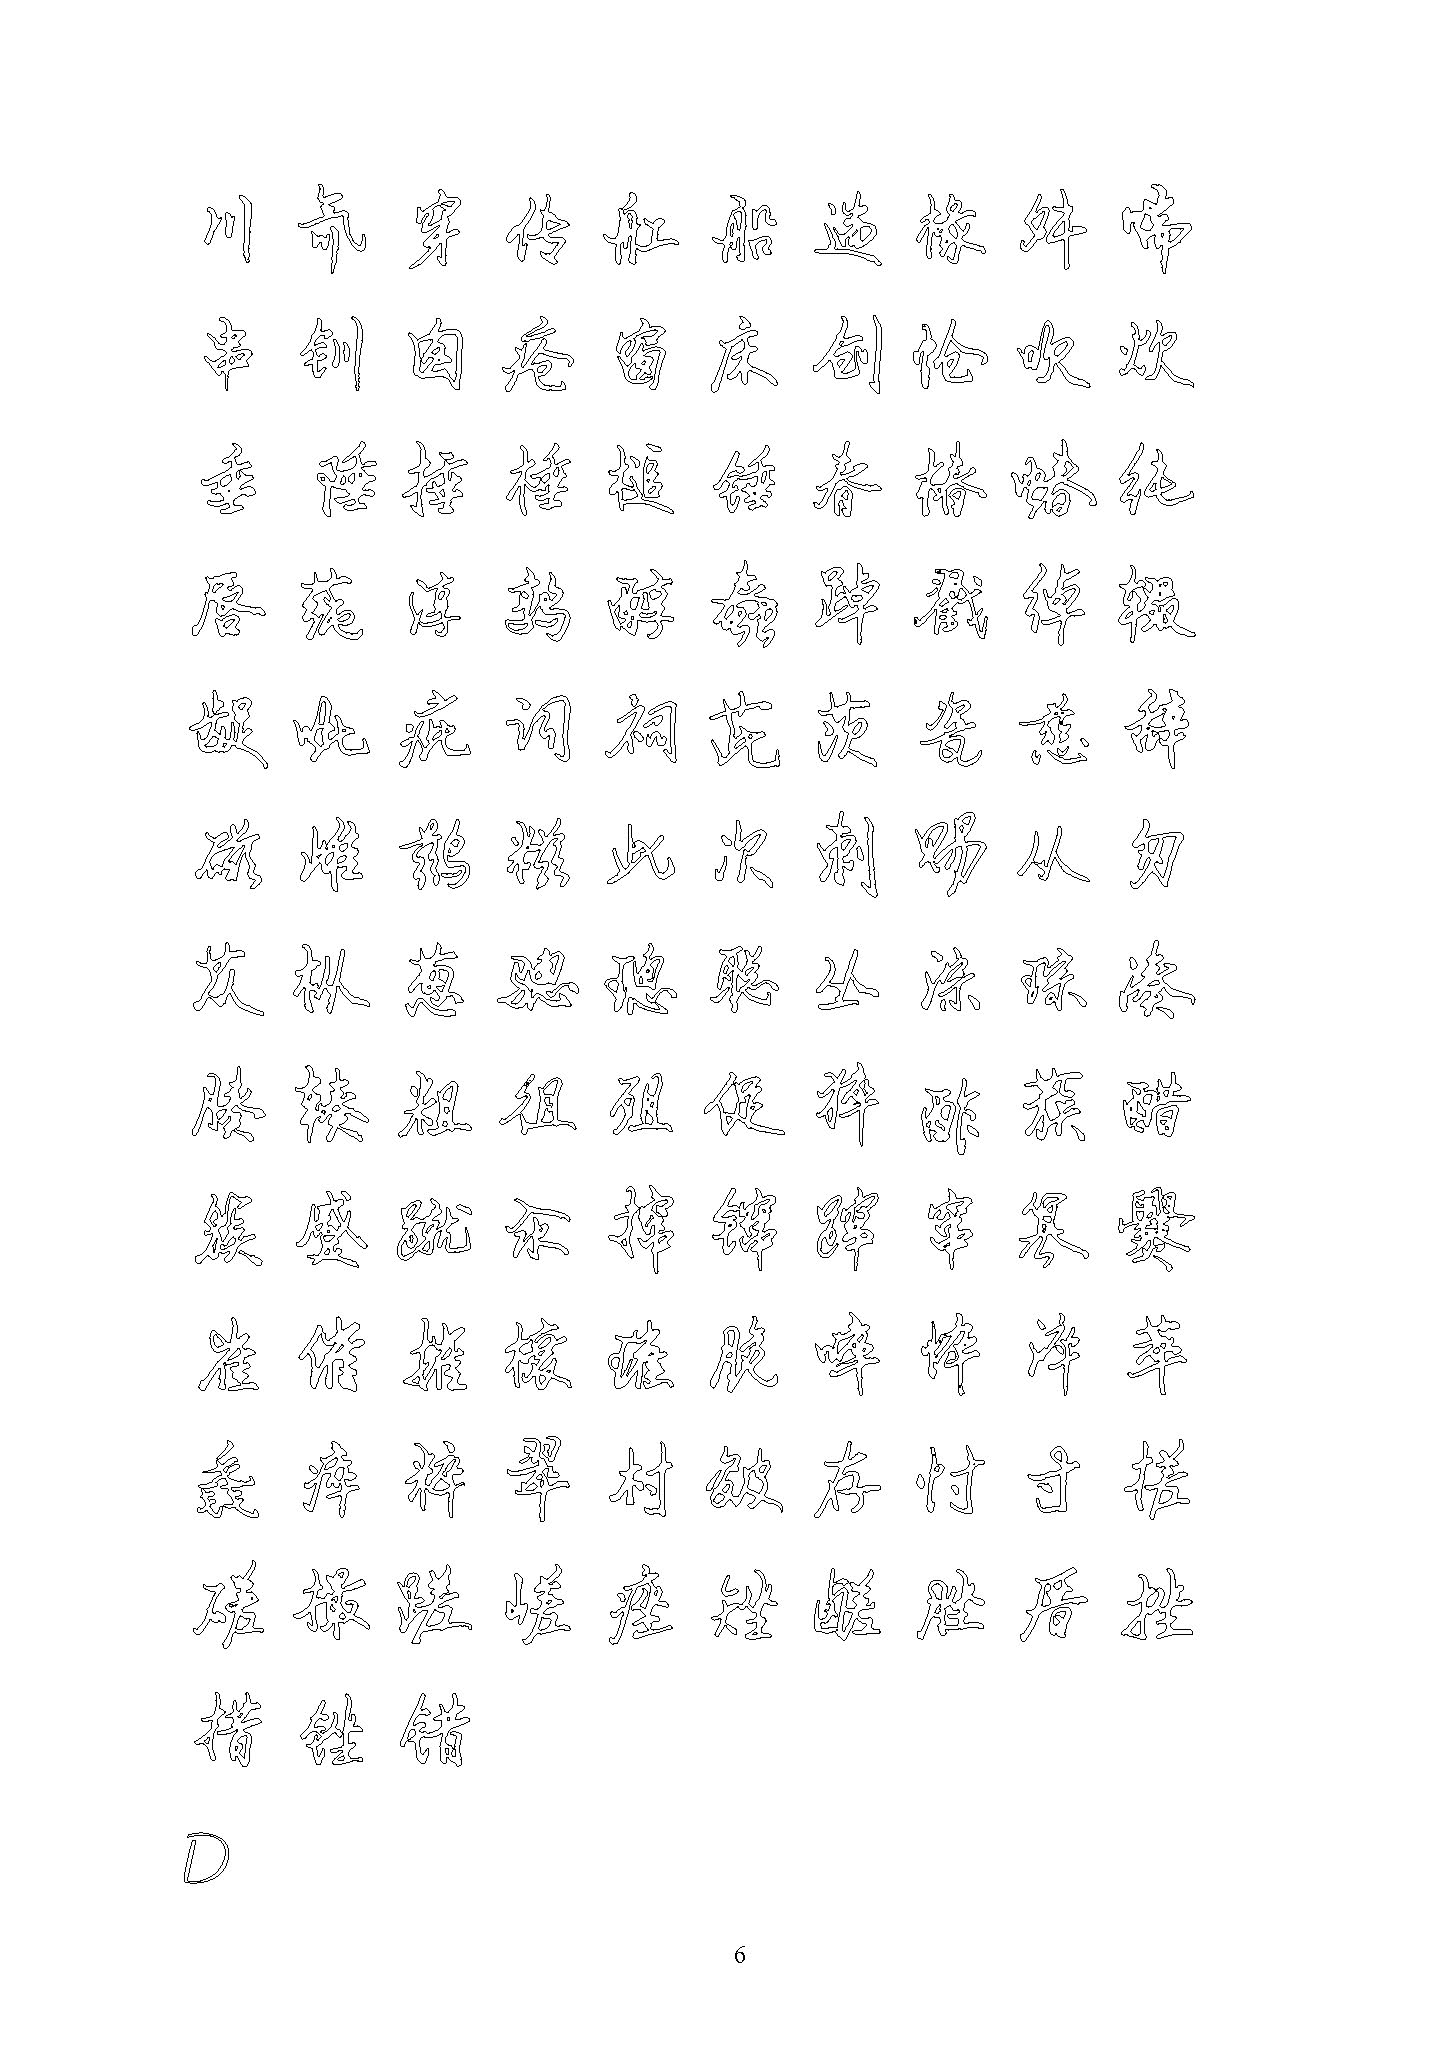 川 氚 穿 传 舡 船 遄 椽 舛 喘
串 钏 囱 疮 窗 床 创 怆 吹 炊
垂 陲 捶 棰 槌 锤 春 椿 蝽 纯
唇 莼 淳 鹑 醇 蠢 踔 戳 绰 辍
龊 呲 疵 词 祠 茈 茨 瓷 慈 辞
磁 雌 鹚 糍 此 次 刺 赐 从 匆
苁 枞 葱 骢 璁 聪 丛 淙 琮 凑
腠 辏 粗 徂 殂 促 猝 酢 蔟 醋
簇 蹙 蹴 汆 撺 镩 蹿 窜 篡 爨
崔 催 摧 榱 璀 脆 啐 悴 淬 萃
毳 瘁 粹 翠 村 皴 存 忖 寸 搓
磋 撮 蹉 嵯 痤 矬 鹾 脞 厝 挫
措 锉 错
D
6